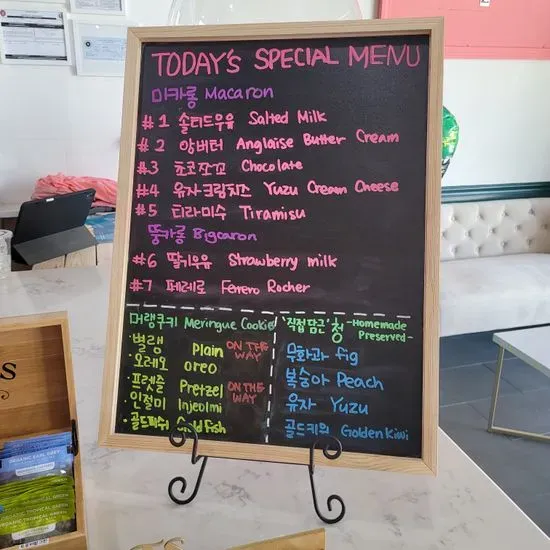 TODAY'S SPECIAL MENU
마카롱 Macaron
#1 솔티드우유 Salted Milk
#2 앙버터 Anglaise Butter Cream
#3 초코잔꼬 Chocolate
#4 유자크림치즈 Yuzu Cream Cheese
#5 티라미수 Tiramisu
뚱카롱 Bigcaron
#6 딸기우유 Strawberry milk
#7 페레로 Ferrero Rocher
머랭쿠키 Meringue Cookie
·별램 Plain ON THE WAY
·오레오 oreo
·프렛즐 Pretzel ON THE WAY
·인절미 Injeolmi
·골드피쉬 Gold Fish
'직접담근' 청 -Homemade Preserved-
무화과 fig
복숭아 Peach
유자 Yuzu
골드키위 Golden Kiwi
ORGANIC EARL GREY
ORGANIC TROPICAL GREEN
ORGANIC TROPICAL GREEN